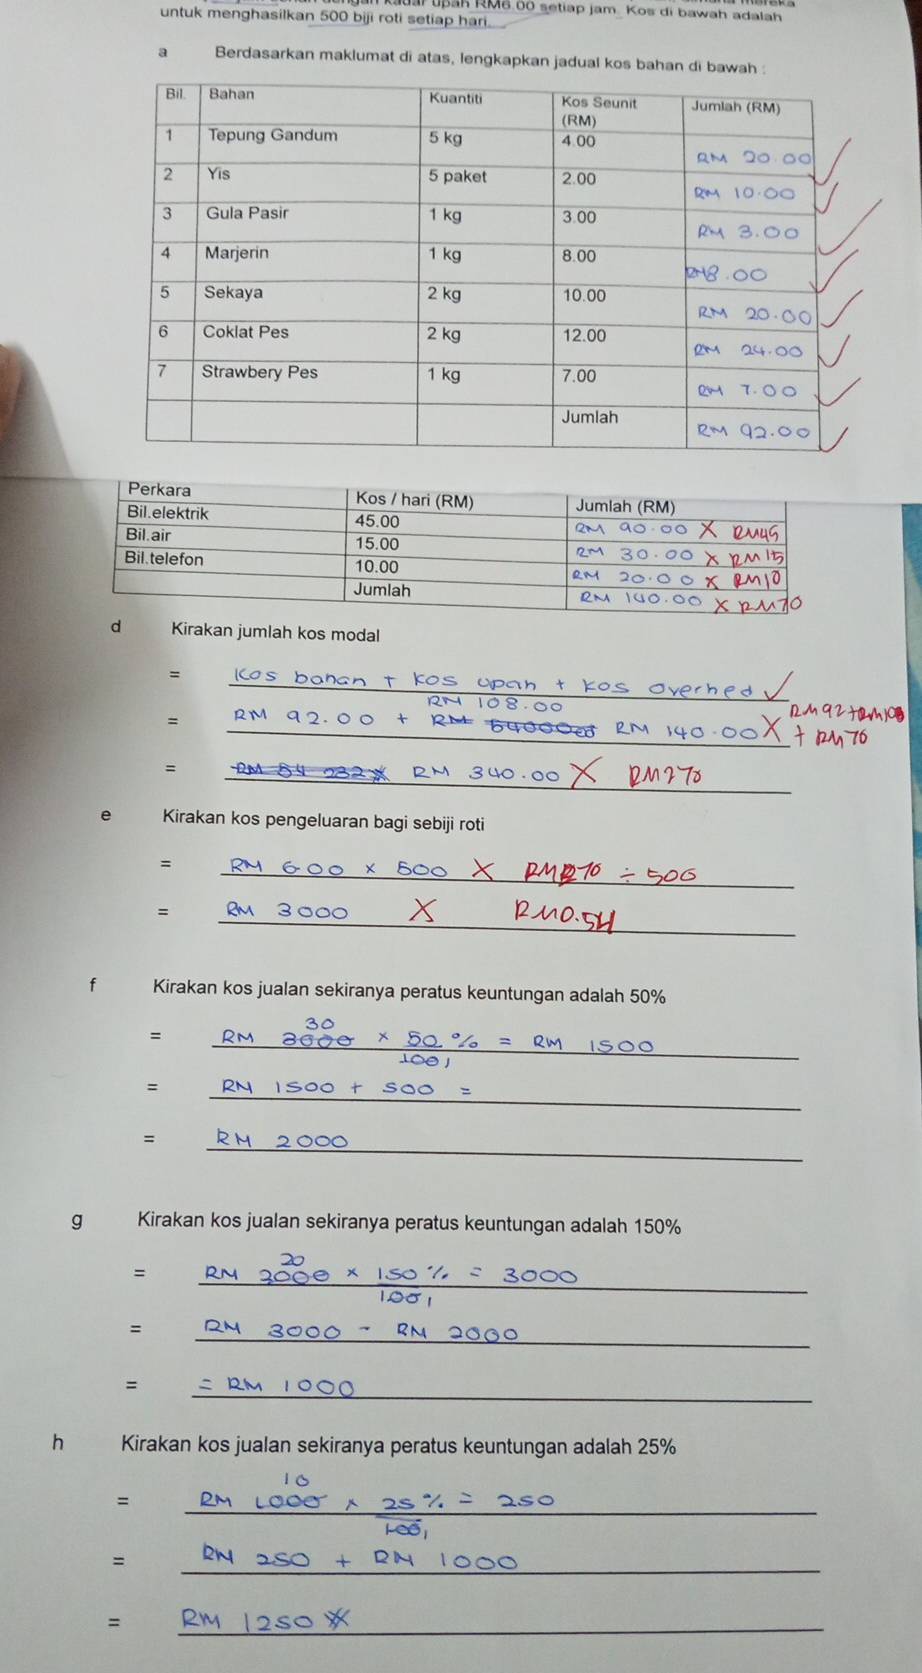 upah RM6.00 setiap jam. Kos di bawah adalah
untuk menghasilkan 500 biji roti setiap hari.
a Berdasarkan maklumat di atas, lengkapkan jadual kos bahan di bawah :
Bil. Bahan Kuantiti Kos Seunit (RM) Jumlah (RM)
1 Tepung Gandum 5 kg 4.00 RM 20.00
2 Yis 5 paket 2.00 RM 10.00
3 Gula Pasir 1 kg 3.00 RM 3.00
4 Marjerin 1 kg 8.00 RM8.00
5 Sekaya 2 kg 10.00 RM 20.00
6 Coklat Pes 2 kg 12.00 RM 24.00
7 Strawbery Pes 1 kg 7.00 RM 7.00
Jumlah RM 92.00
Perkara Kos / hari (RM) Jumlah (RM)
Bil.elektrik 45.00 RM 90.00 X RM45
Bil.air 15.00 RM 30.00 X RM15
Bil.telefon 10.00 RM 20.00 X RM10
Jumlah RM 140.00 X RM70
d Kirakan jumlah kos modal
= Kos bahan + kos upah + kos overhed
= RM 92.00 + RM 108.00 RM 140.00 X RM92+RM108 + RM70
= RM 340.00 X RM270
e Kirakan kos pengeluaran bagi sebiji roti
= RM 600 x 500 X RM270 ÷ 500
= RM 3000 X RM0.54
f Kirakan kos jualan sekiranya peratus keuntungan adalah 50%
30
= RM 3000 x 50 % = RM 1500
100 1
= RM 1500 + 500 =
= RM 2000
g Kirakan kos jualan sekiranya peratus keuntungan adalah 150%
20
= RM 2000 x 150 % = 3000
100 1
= RM 3000 - RM 2000
= = RM 1000
h Kirakan kos jualan sekiranya peratus keuntungan adalah 25%
10
= RM 1000 x 25 % = 250
100 1
= RM 250 + RM 1000
= RM 1250